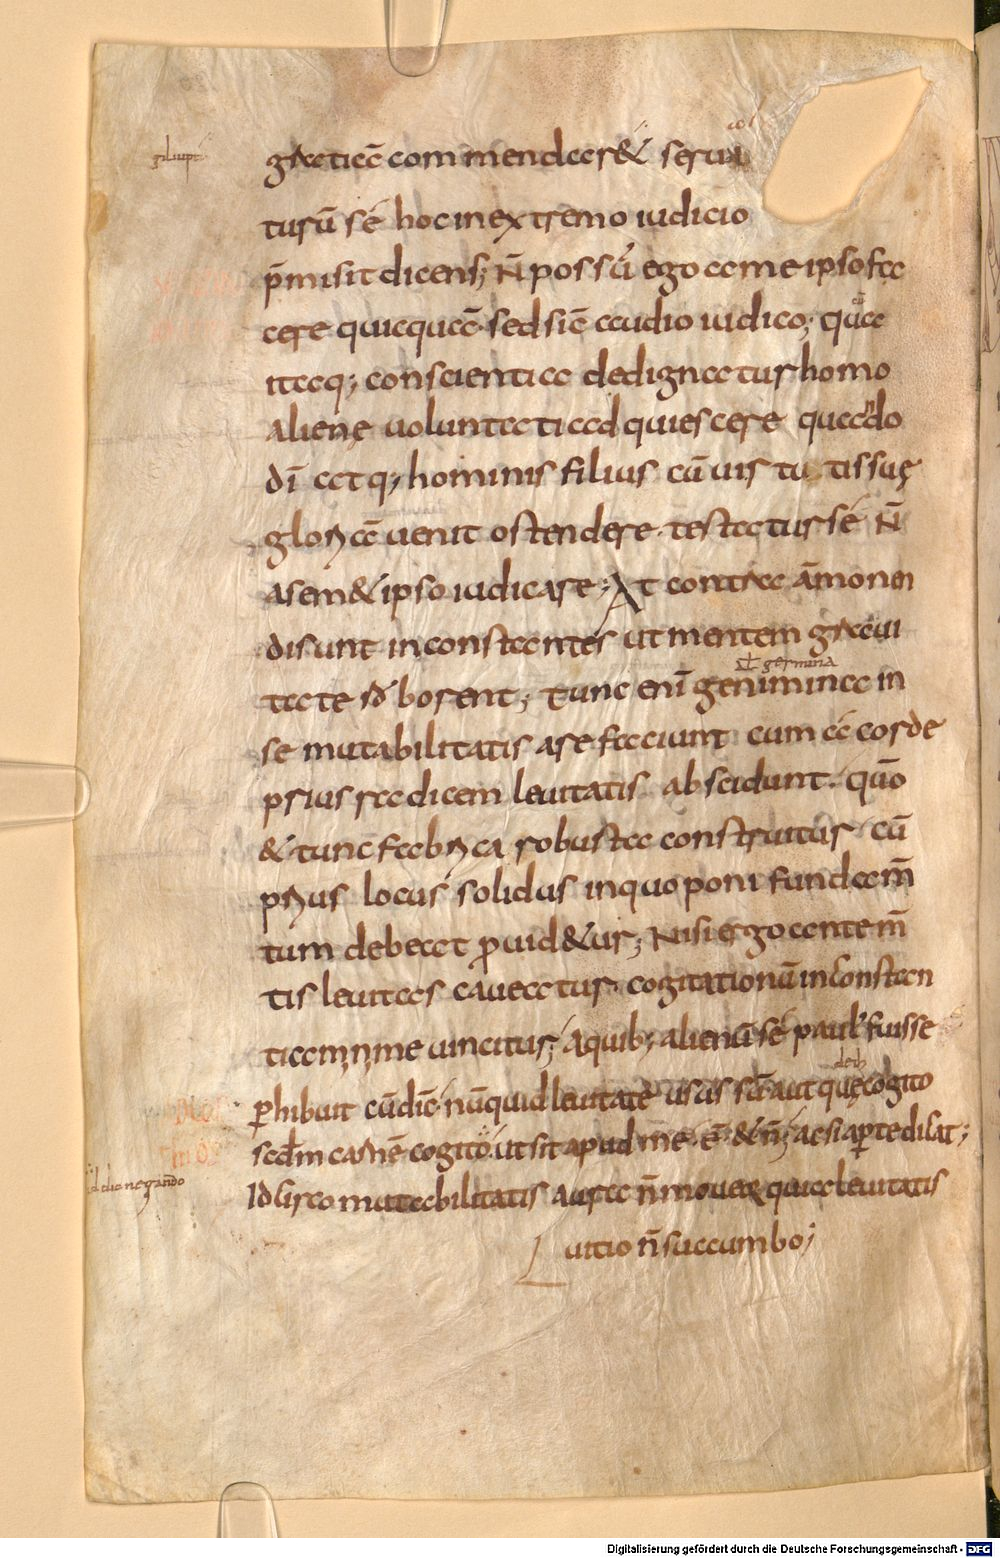 gratiā commendaret serua
turū se hoc in extremo iudicio
p̄misit dicens; N̄ possū ego a me ipso fa
cere quicquā· sed sic̄ audio iudico; qua
itaq; conscientia dedignatur homo
alienę uoluntati adquiescere quando
dī atq; hominis filius cū uirtutis suę
gloriā uenit ostendere· testatur se n̄
a sem&ipso iudicare; At contra āmonen
di sunt inconstantes ut mentem graui
tate roborent; Tunc enī genimina in
sł germina
se mutabilitatis arefaciunt cum a corde
prius radicem leuitatis abscidunt· quō
& tunc fabrica robusta construitur cū
prius locus solidus in quo poni fundam̄
tum debeat p̲uid&ur; Nisi ego ante m̄
tis leuitas caueatur· cogitationū inconstan
tia minime uincitur; A quib; alienū se paul' fuisse
p̲hibuit cū dic̄· nūquid leuitate usus sū· aut quę cogito
scd̄m carnē cogito· ut sit apud me· ē· & n̄; ac si ap̲te dicat;
Idcirco mutabilitatis aura n̄ moueor quia leuitatis
uitio n̄ succumbo;
Digitalisierung gefördert durch die Deutsche Forschungsgemeinschaft - DFG